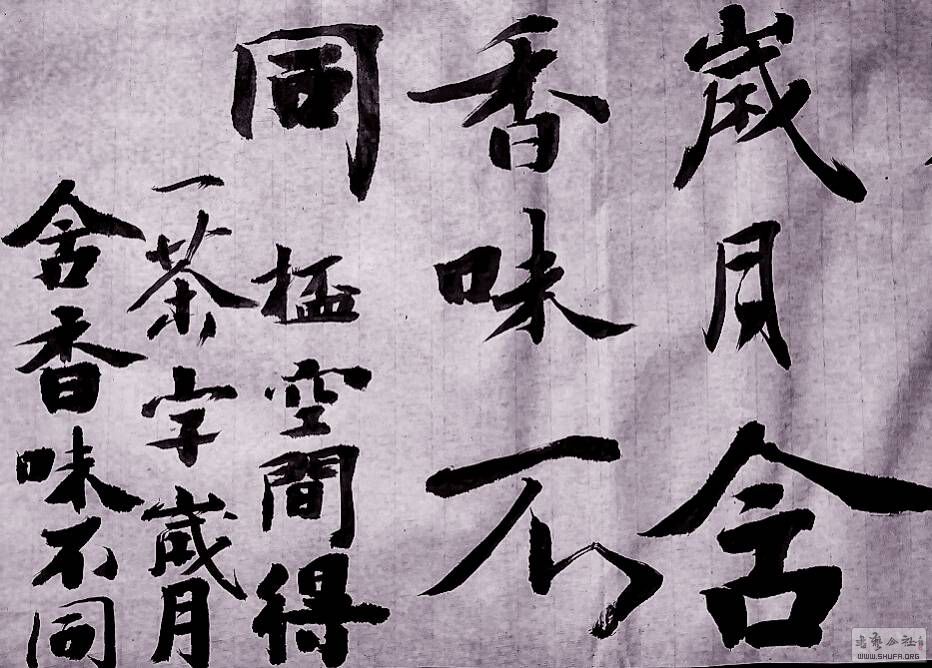 歲月舍
香味不
同
空間得
一茶字歲月
舍香味不同
書藝公社
WWW.SHUFA.ORG